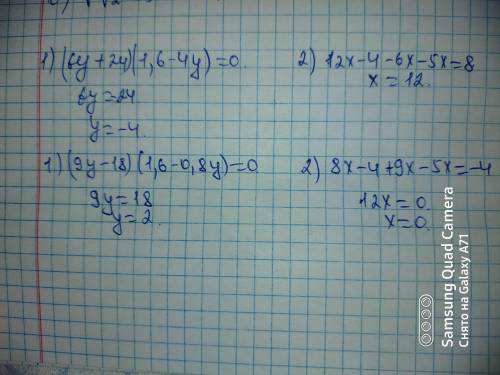 1) (6y+24)(1,6-4y)=0.
6y=24
y=-4.
2) 12x-4-6x-5x=8
x=12.
1.) (9y-18)(1,6-0,8y)=0
9y=18
y=2.
2) 8x-4+9x-5x=-4
12x=0.
x=0.
Samsung Quad Camera
Снято на Galaxy A71